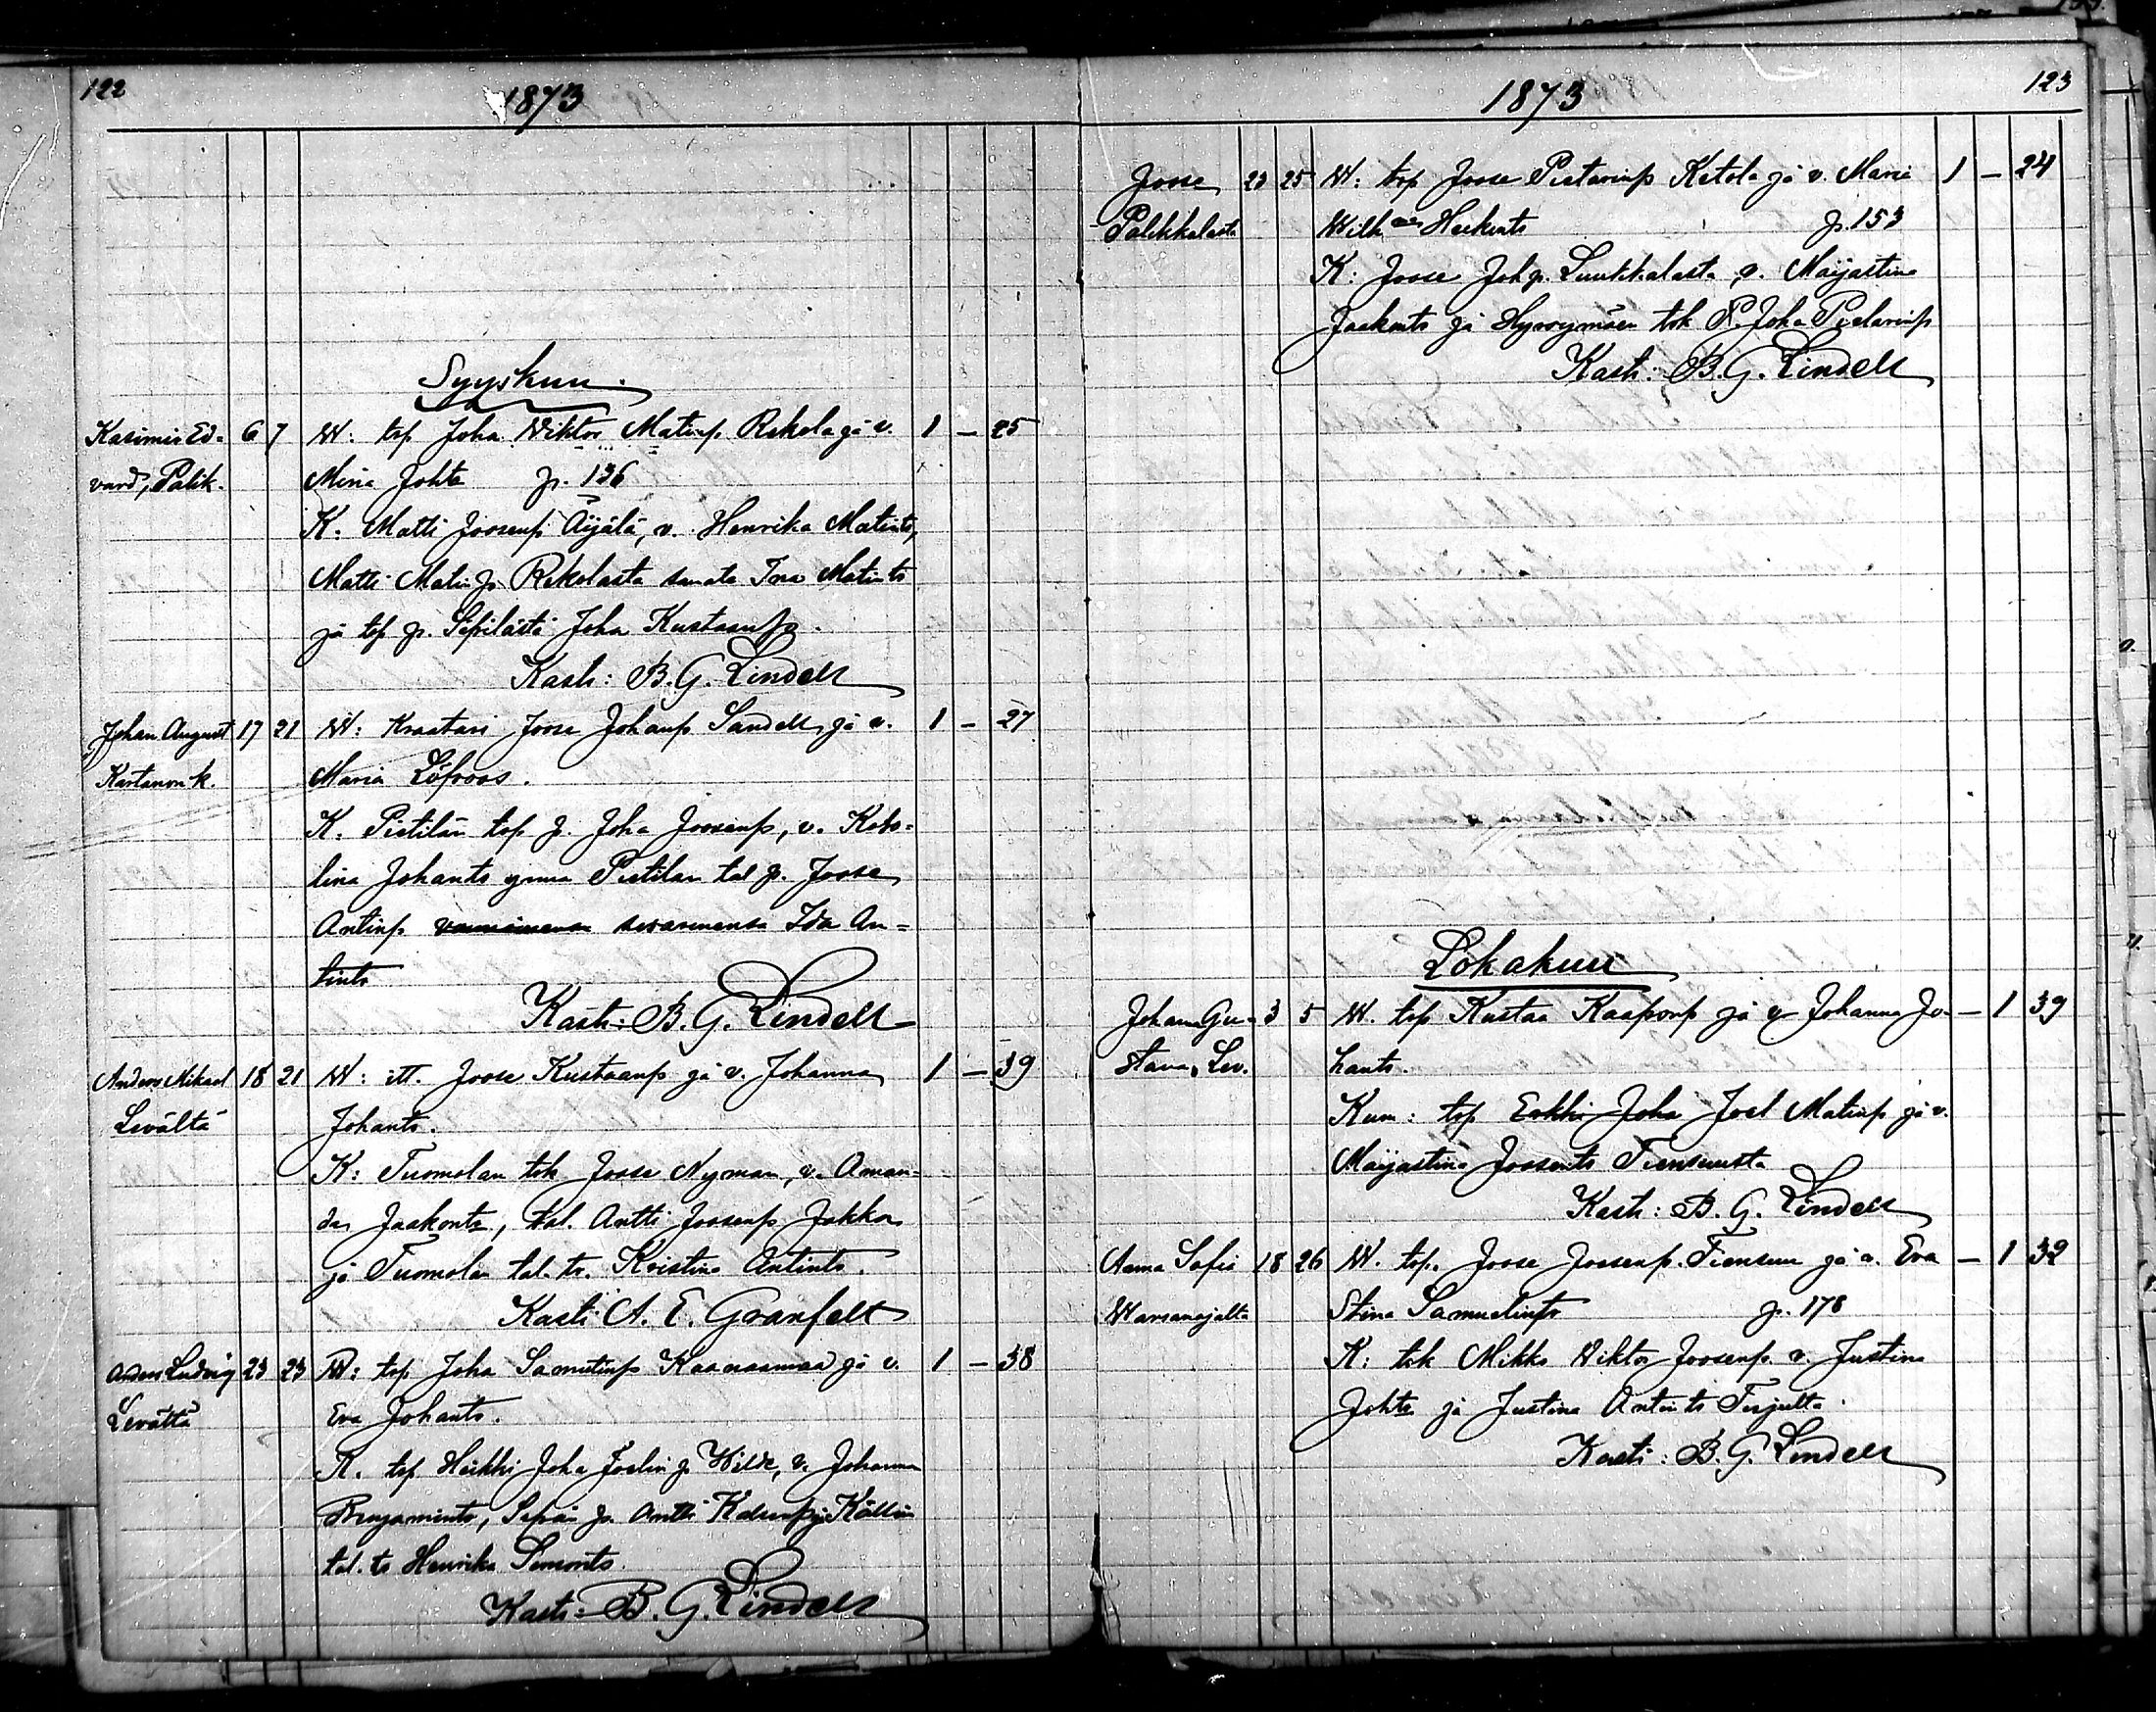 122
1873
Syyskuu.
Kasimir Ed- 6 7 W: tsp Joha Wiktor Matinp. Rekola ja v. 1 – 25
vard, Palik. Mina Johts p. 136
K. Matti Joosenp. Äijälä, v. Henrika Matints,
Matti Matinp. Rekolasta Matints
ja tsp p. Sepilästä Joha Kustaanp.
Kasti: B. G. Lindell
Johan August 17 21 W: Kraatari Joose Johanp Sandell ja v. 1 – 27
Kartanon k. Maria Löfroos.
K. Pietilän tsp p. Joha Joosenp, v. Karo-
lina Johants ynnä Pietilän tal p. Joose
Antinp sisarinensa Ida An-
tints
Kasti: B. G. Lindell
Anders Mikael 18 21 W: itt. Joose Kustaanp ja v. Johanna 1 – 39
Levältä Johants.
K: Tuomolan tsk Joose Nyman, v. Aman-
da Jaakonts, tal. Antti Joosenp Jakkon
ja Tuomolan tal. tr. Kristina Antints.
Kasti A. E. Granfelt
Anders Ludvig 23 23 W: tsp Joha Kaanaanmaa ja v. 1 – 38
Levältä Eva Johants.
K. tsp Heikki Joha Joelin p. Wilde, v. Johanna
Benjamints, Sepän p. Antti ja Källin
tal. ts Henrika Simonts.
Kasti: B. G. Lindell
1873
123
Joose 23 25 W: tsp Joose Pietarinp Ketola ja v. Maria 1 – 24
Palikkalasta Wilh Heikints p. 153
K: Joose Joh p. Luukkalasta, v. Maijastina
Jaakonts ja Hyrsynmäen tsk P. Joha Pietarinp
Kasti: B. G. Lindell
Lokakuu
Johanna Gu- 3 5 W. tsp Kustaa Kaaponp ja v Johanna Jo- – 1 39
stava, Lev. hants.
Kum: tsp Erkki Joha Joel Matinp ja v.
Maijastina Joosents Tiensuusta
Kasti: B. G. Lindell
Anna Sofia 18 26 W. tsp. Joose Joosenp. Tiensuu ja v. Eva – 1 32
Warsanojalta Stina Samuelints p. 178
K: tsk Mikko Wiktor Joosenp. v. Justina
Johts ja Justina Antints
Kasti: B. G. Lindell